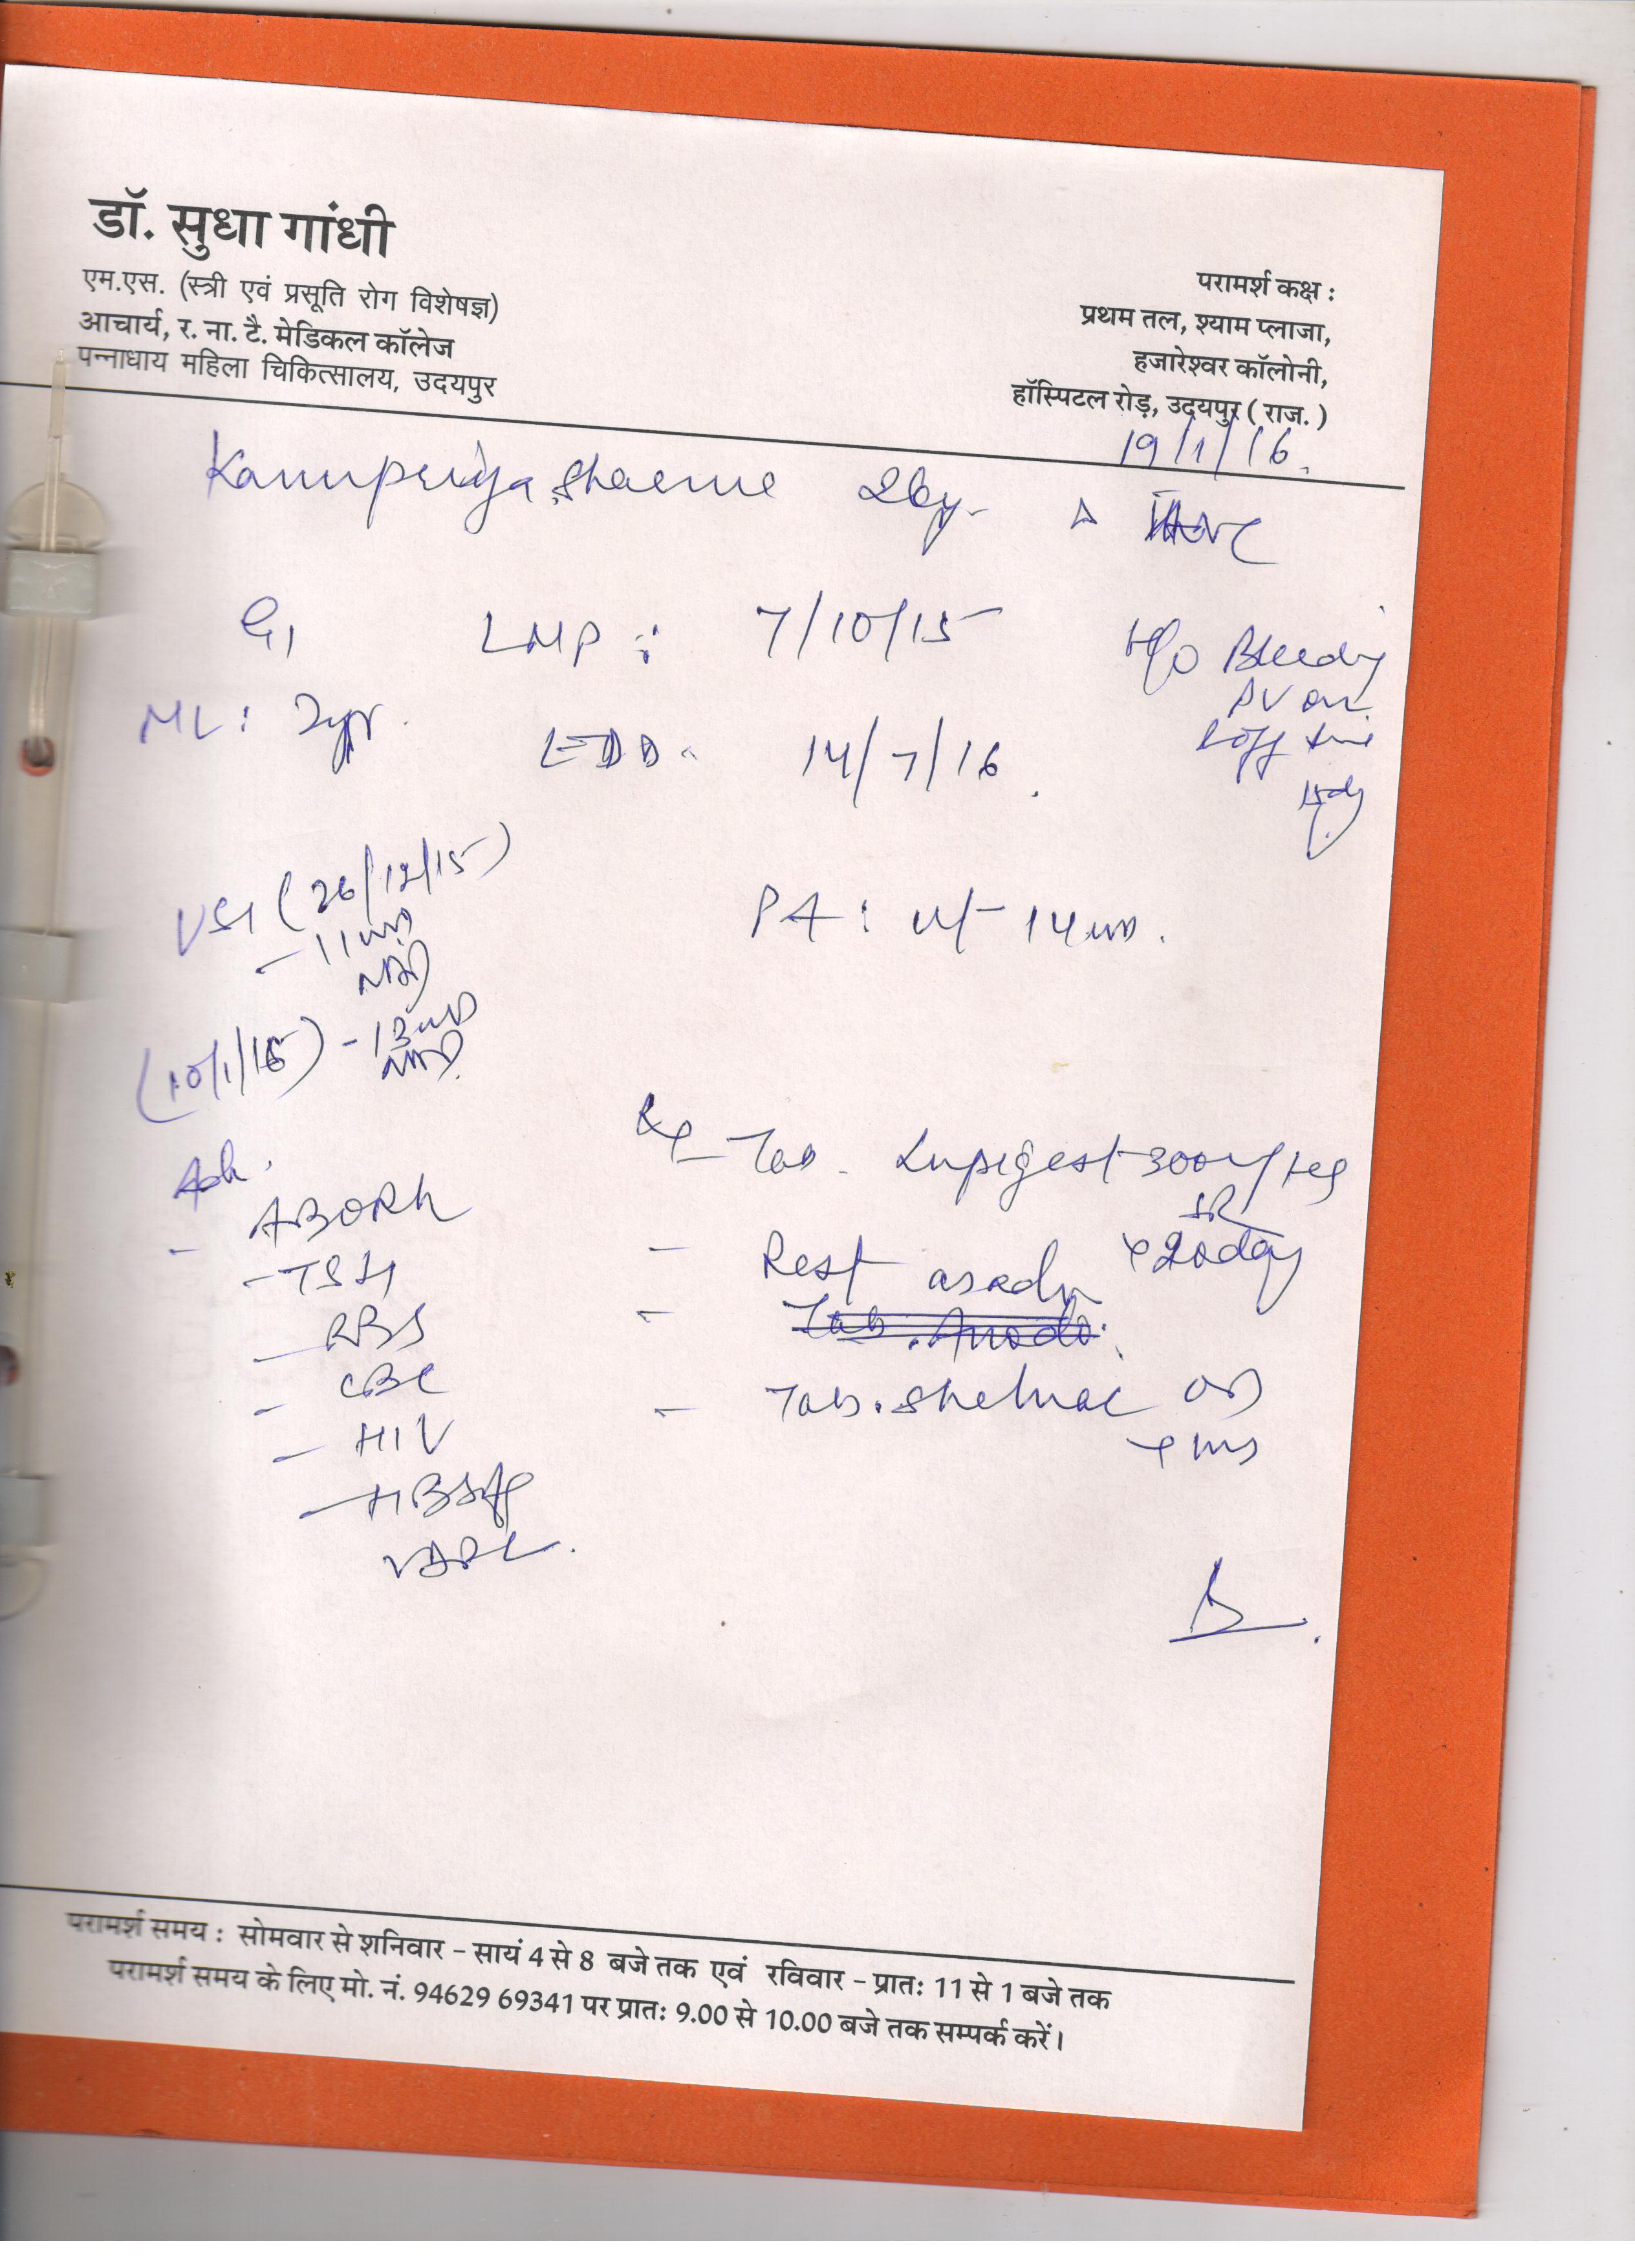 डॉ. सुधा गांधी
एम.एस. (स्त्री एवं प्रसूति रोग विशेषज्ञ)
आचार्य, र. ना. टै. मेडिकल कॉलेज
पन्नाधाय महिला चिकित्सालय, उदयपुर
परामर्श कक्ष :
प्रथम तल, श्याम प्लाजा,
हजारेश्वर कॉलोनी,
हॉस्पिटल रोड़, उदयपुर ( राज. )
19/1/16.
Kanupriya Sharma 26y.
G1 LMP : 7/10/15
H/O Bleeding
PV on
& off
ML : 2yr.
EDD. 14/7/16.
USG (26/12/15)
- 11
(10/1/16) - 13
PA : 14
Adv.
- ABORh
- TSH
- RBS
- CBC
- HIV
- HBsAg
VDRL.
Rx - Tab. Lupigest 300mg
SR
x 20 day
- Rest as adv
- Tab. Shelcal OD
परामर्श समय : सोमवार से शनिवार - सायं 4 से 8 बजे तक एवं रविवार - प्रातः 11 से 1 बजे तक
परामर्श समय के लिए मो. नं. 94629 69341 पर प्रातः 9.00 से 10.00 बजे तक सम्पर्क करें।